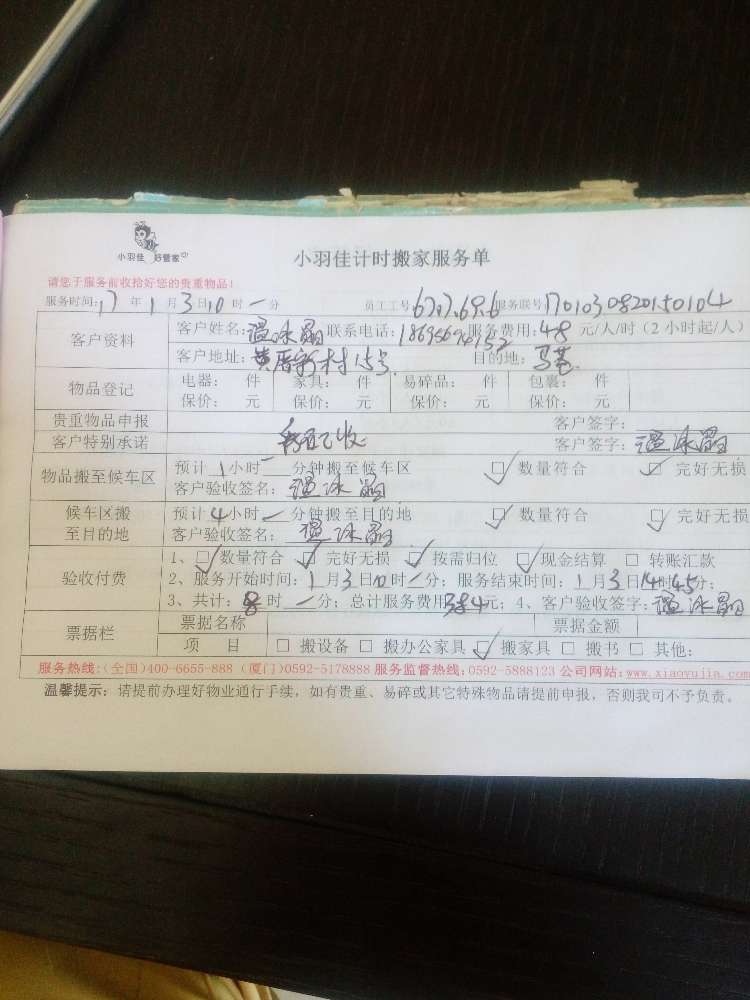 小羽佳 好管家
小羽佳计时搬家服务单
请您于服务前收拾好您的贵重物品!
服务时间:17年1月3日10时一分 员工工号: 服务联号:1701030820150104
客户资料 客户姓名:温冰晶 联系电话: 服务费用:48元/人/时(2小时起/人)
客户地址:黄厝新村15号 目的地:
物品登记 电器: 件 家具: 件 易碎品: 件 包裹: 件
保价: 元 保价: 元 保价: 元 保价: 元
贵重物品申报 客户签字:
客户特别承诺 客户签字:温冰晶
物品搬至候车区 预计1小时一分钟搬至候车区 □数量符合 □完好无损
客户验收签名:温冰晶
候车区搬至目的地 预计4小时一分钟搬至目的地 □数量符合 □完好无损
客户验收签名:温冰晶
验收付费 1、□数量符合 □完好无损 □按需归位 □现金结算 □转账汇款
2、服务开始时间:1月3日10时一分;服务结束时间:1月3日14时45分;
3、共计: 时一分;总计服务费用 元;4、客户验收签字:温冰晶
票据栏 票据名称 票据金额
项 目 □搬设备 □搬办公家具 □搬家具 □搬书 □其他:
服务热线:(全国)400-6655-888 (厦门)0592-5178888 服务监督热线:0592-5888123 公司网站:www.xiaoyujia.com
温馨提示:请提前办理好物业通行手续,如有贵重、易碎或其它特殊物品请提前申报,否则我司不予负责。